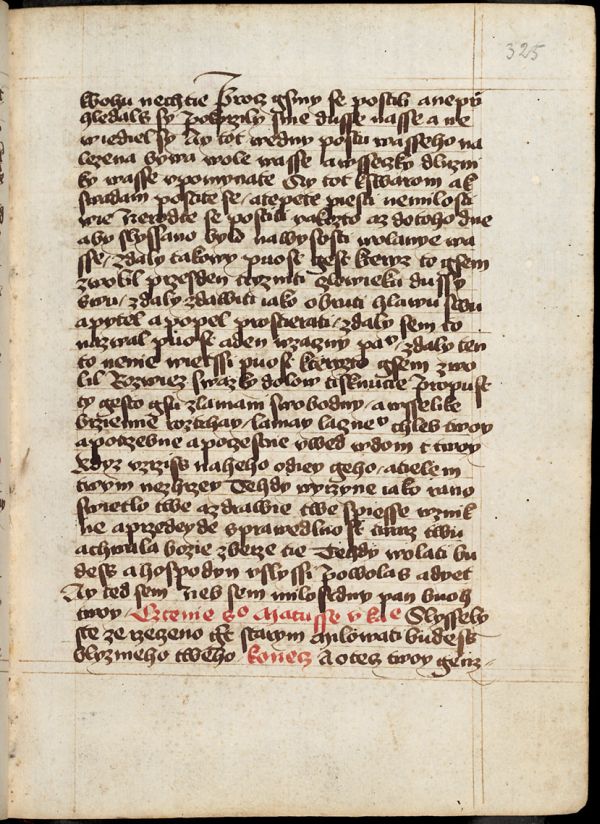 325
Bohu nechtie Procz gsmy se postili anepo
hledals sy Ponyzili sme dusse nasse a ne
wiediel sy Ay tot wedny postu wasseho na
lezena bywa wole wasse a wsseczky dluzni
ky wasse vpomynate Ay tot kswarom ak
swadam postite se / atepete piesti nemilosti
wie Nerodte se postiti yakozto az dotoho dne
aby slyssano bylo nawysosti wolanye wa
sse / zdaly takowy puost gest kteryz to gsem
zwolil przesden tryzniti czlowieku dussy
swu / zdaly zdawiti iako obruti hlawu swu
a pytel a popel prostierati / zdaly sem to
nazwal puost aden wzaczny pa / zdaly ten
to nenie wietssi puost kteryzto gsem zwo
lil Rozwiez swazky dolow tisknucie Propust
ty gesto gsu zlamani swobodny / a wsselike
brziemie roztrhay / lamay laczne chleb twoy
a potrzebne a poczestne vwed wdom twoy
kdyz vzrziss naheho odiey geho / atielem
twym nezhrzey Tehdy wyrzyne iako rano
swietlo twe azdrawie twe spiesse wznik
ne aprzedeyde sprawedlnost twarz twu
achwala bozie zberze tie Tehdy wolati bu
dess a hospodyn vslyssi Powolas adyet
Ay ted sem Neb sem milosrdny pan buoh
twoy / Cztenie so Matusse v ka e Slyssely
ste ze rzeczeno gest starym milowati budess
blyznieho tweho / konecz A otecz twoy genz /